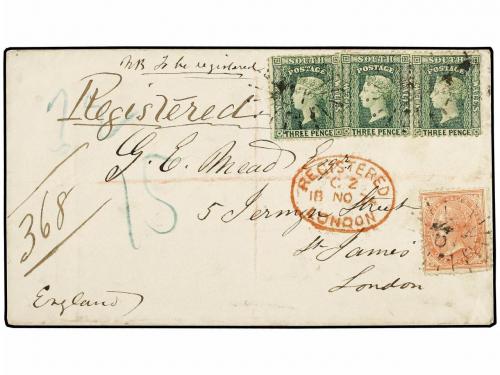 NB To be registered
Registered
SOUTH
POSTAGE
THREE PENCE
SOUTH
POSTAGE
THREE PENCE
SOUTH
POSTAGE
THREE PENCE
G. E. Mead Esqr
REGISTERED
C Z
18 NO
LONDON
5 Jermyn Street
St James'
London
368
15
England